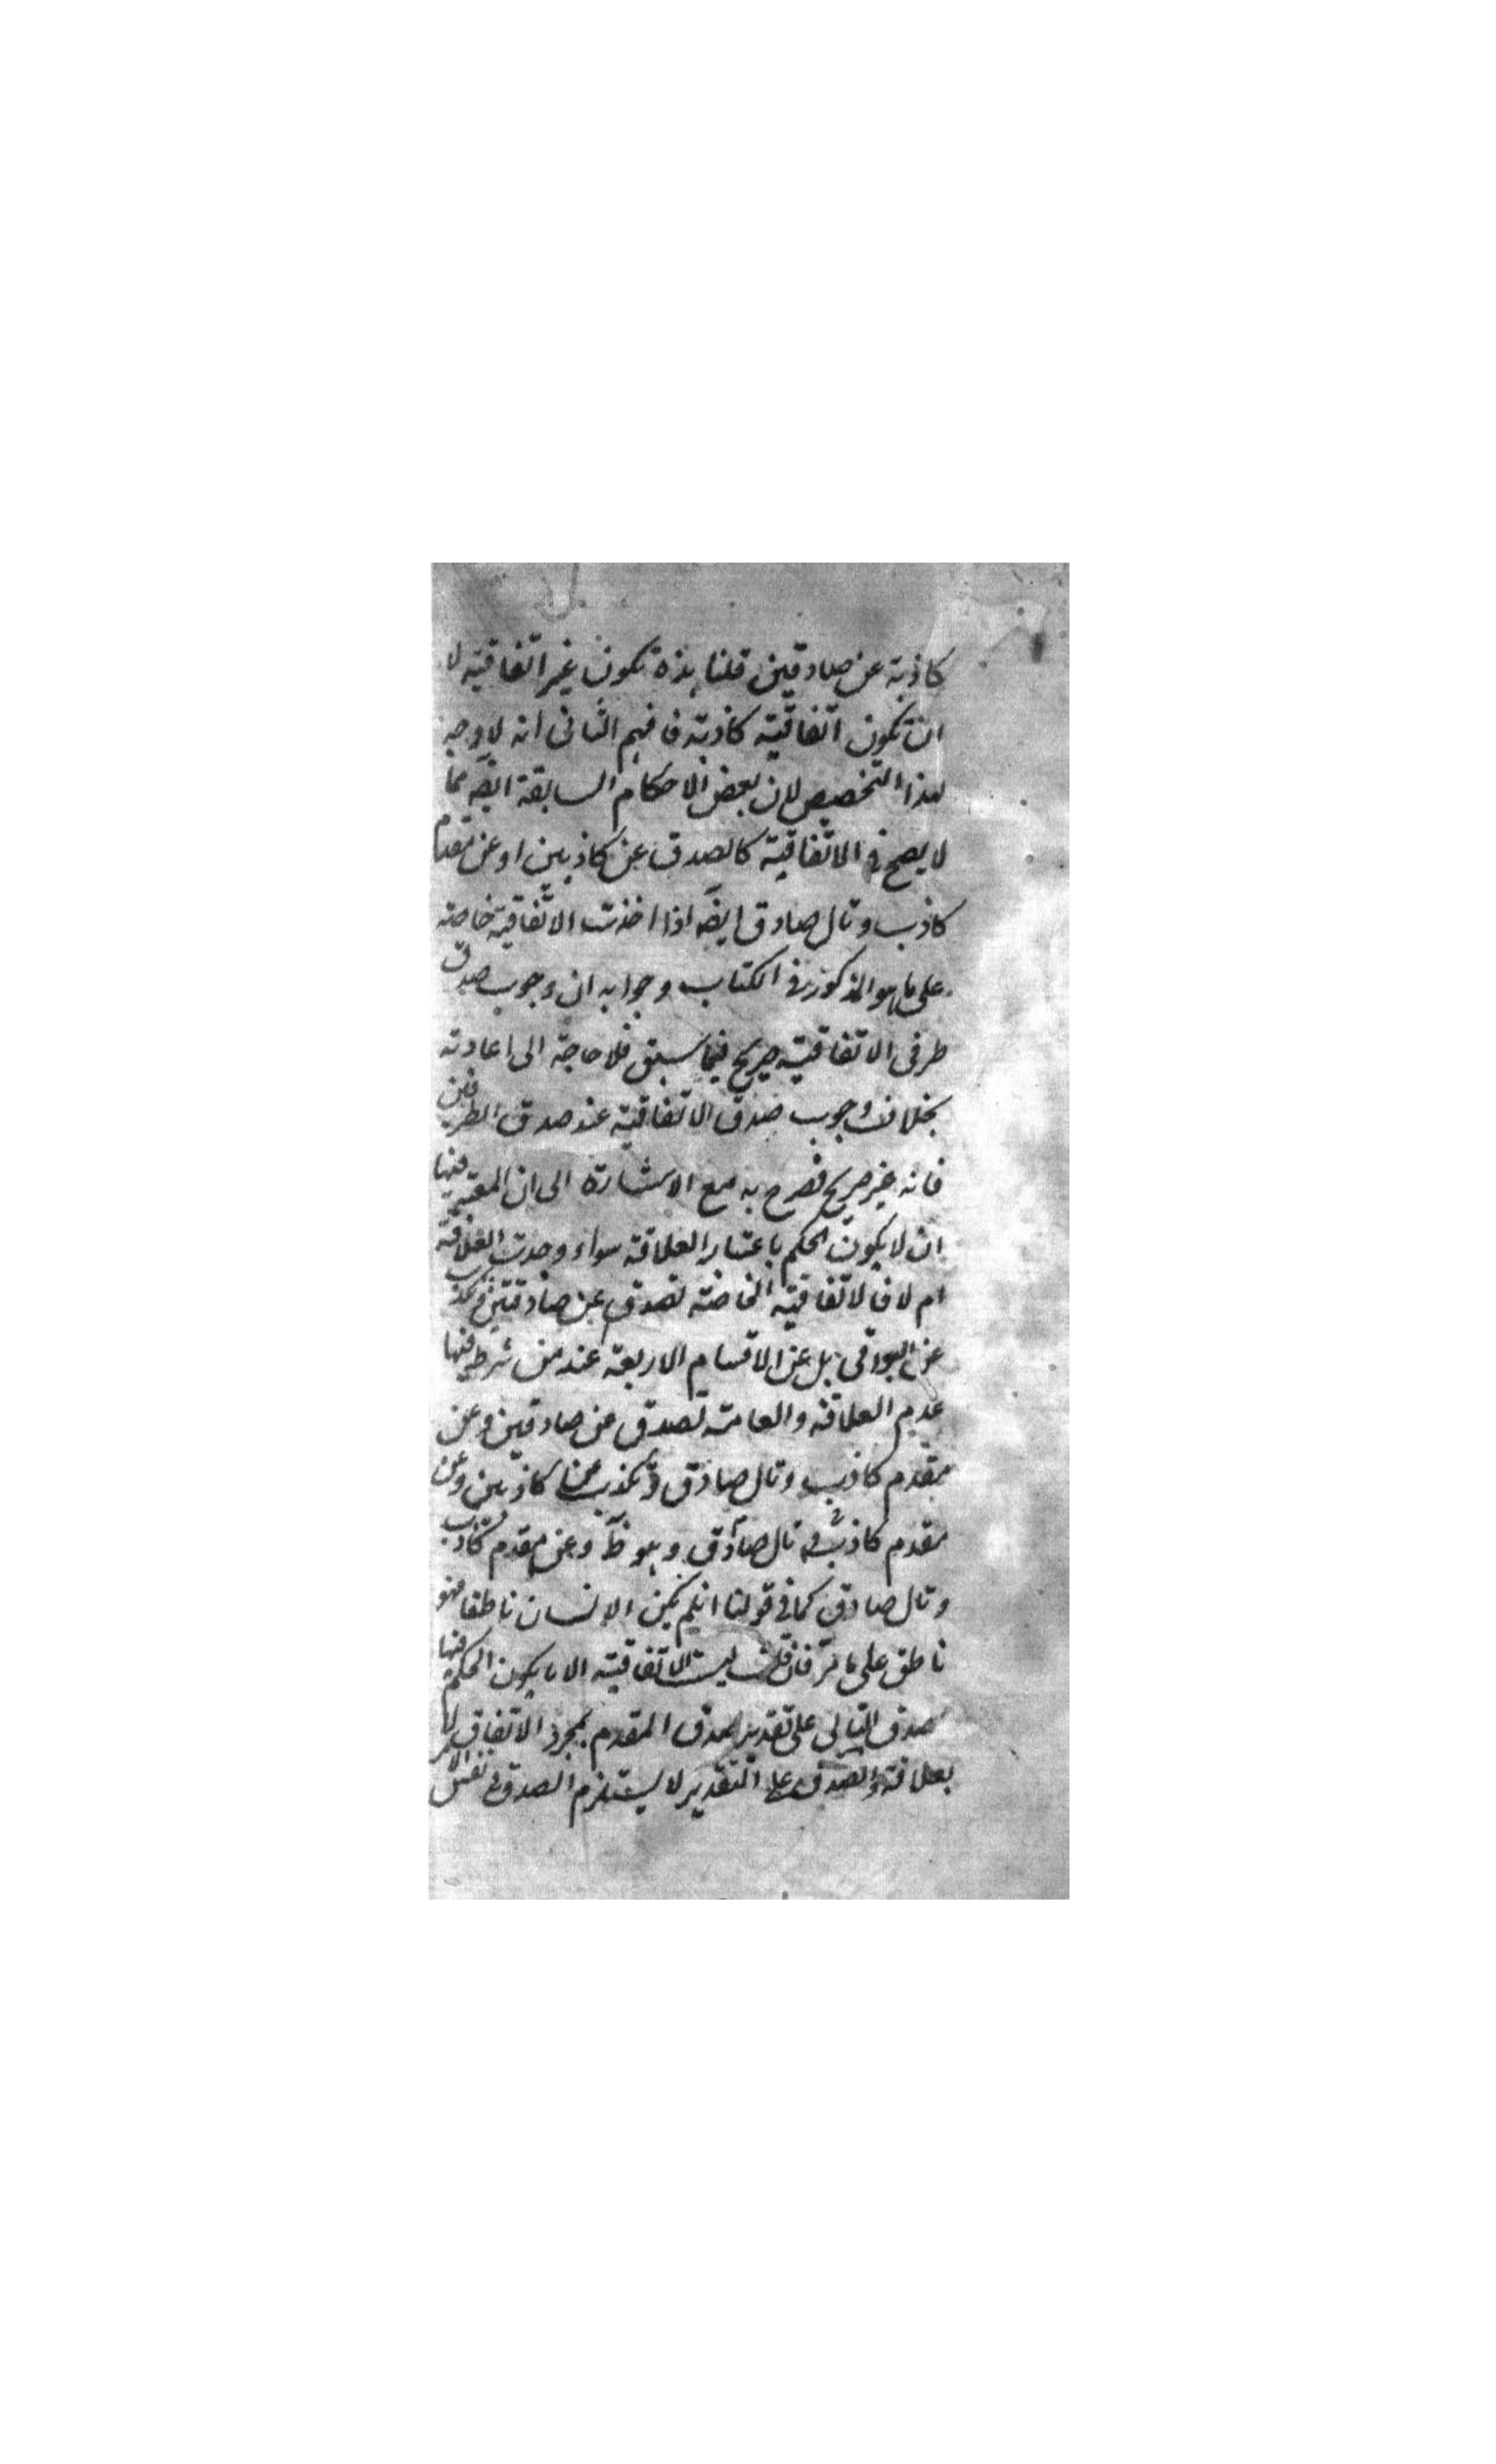 كاذبة عن صادقين قلنا هذه تكون غير اتفاقية لا
ان تكون اتفاقية كاذبة فافهم الثانى انه لا وجه
لهذا التخصيص لان بعض الاحكام السابقة ايضه مما
لا يصح فى الاتفاقية كالصدق عن كاذبين او عن مقدم
كاذب وتال صادق ايضه اذا اخذت الاتفاقية خاصة
على ما هو المذكور فى الكتاب وجوابه ان وجوب صدق
طرفى الاتفاقية صريح فيما سبق فلا حاجة الى اعادته
بخلاف وجوب صدق الاتفاقية عند صدق الطرفين
فانه غير صريح فصرح به مع الاشارة الى ان المعتبر فيها
ان لا يكون الحكم باعتبار العلاقة سواء وجدت العلاقة
ام لا فالاتفاقية الخاصة تصدق عن صادقتين وتكذب
عن البواقى بل عن الاقسام الاربعة عند من شرط فيها
عدم العلاقة والعامة تصدق عن صادقين وعن
مقدم كاذب وتال صادق وتكذب عن كاذبين وعن
مقدم كاذب تال صادق وهو ظ وعن مقدم كاذب
وتال صادق كما فى قولنا ان لم يكن الانسان ناطقا فهو
ناطق على ما مر فان قلت ليست الاتفاقية الا ما يكون الحكم فيها
بصدق التالى على تقدير صدق المقدم بمجرد الاتفاق لا
بعلاقة والصدق على التقدير لا يستلزم الصدق فى نفس الامر